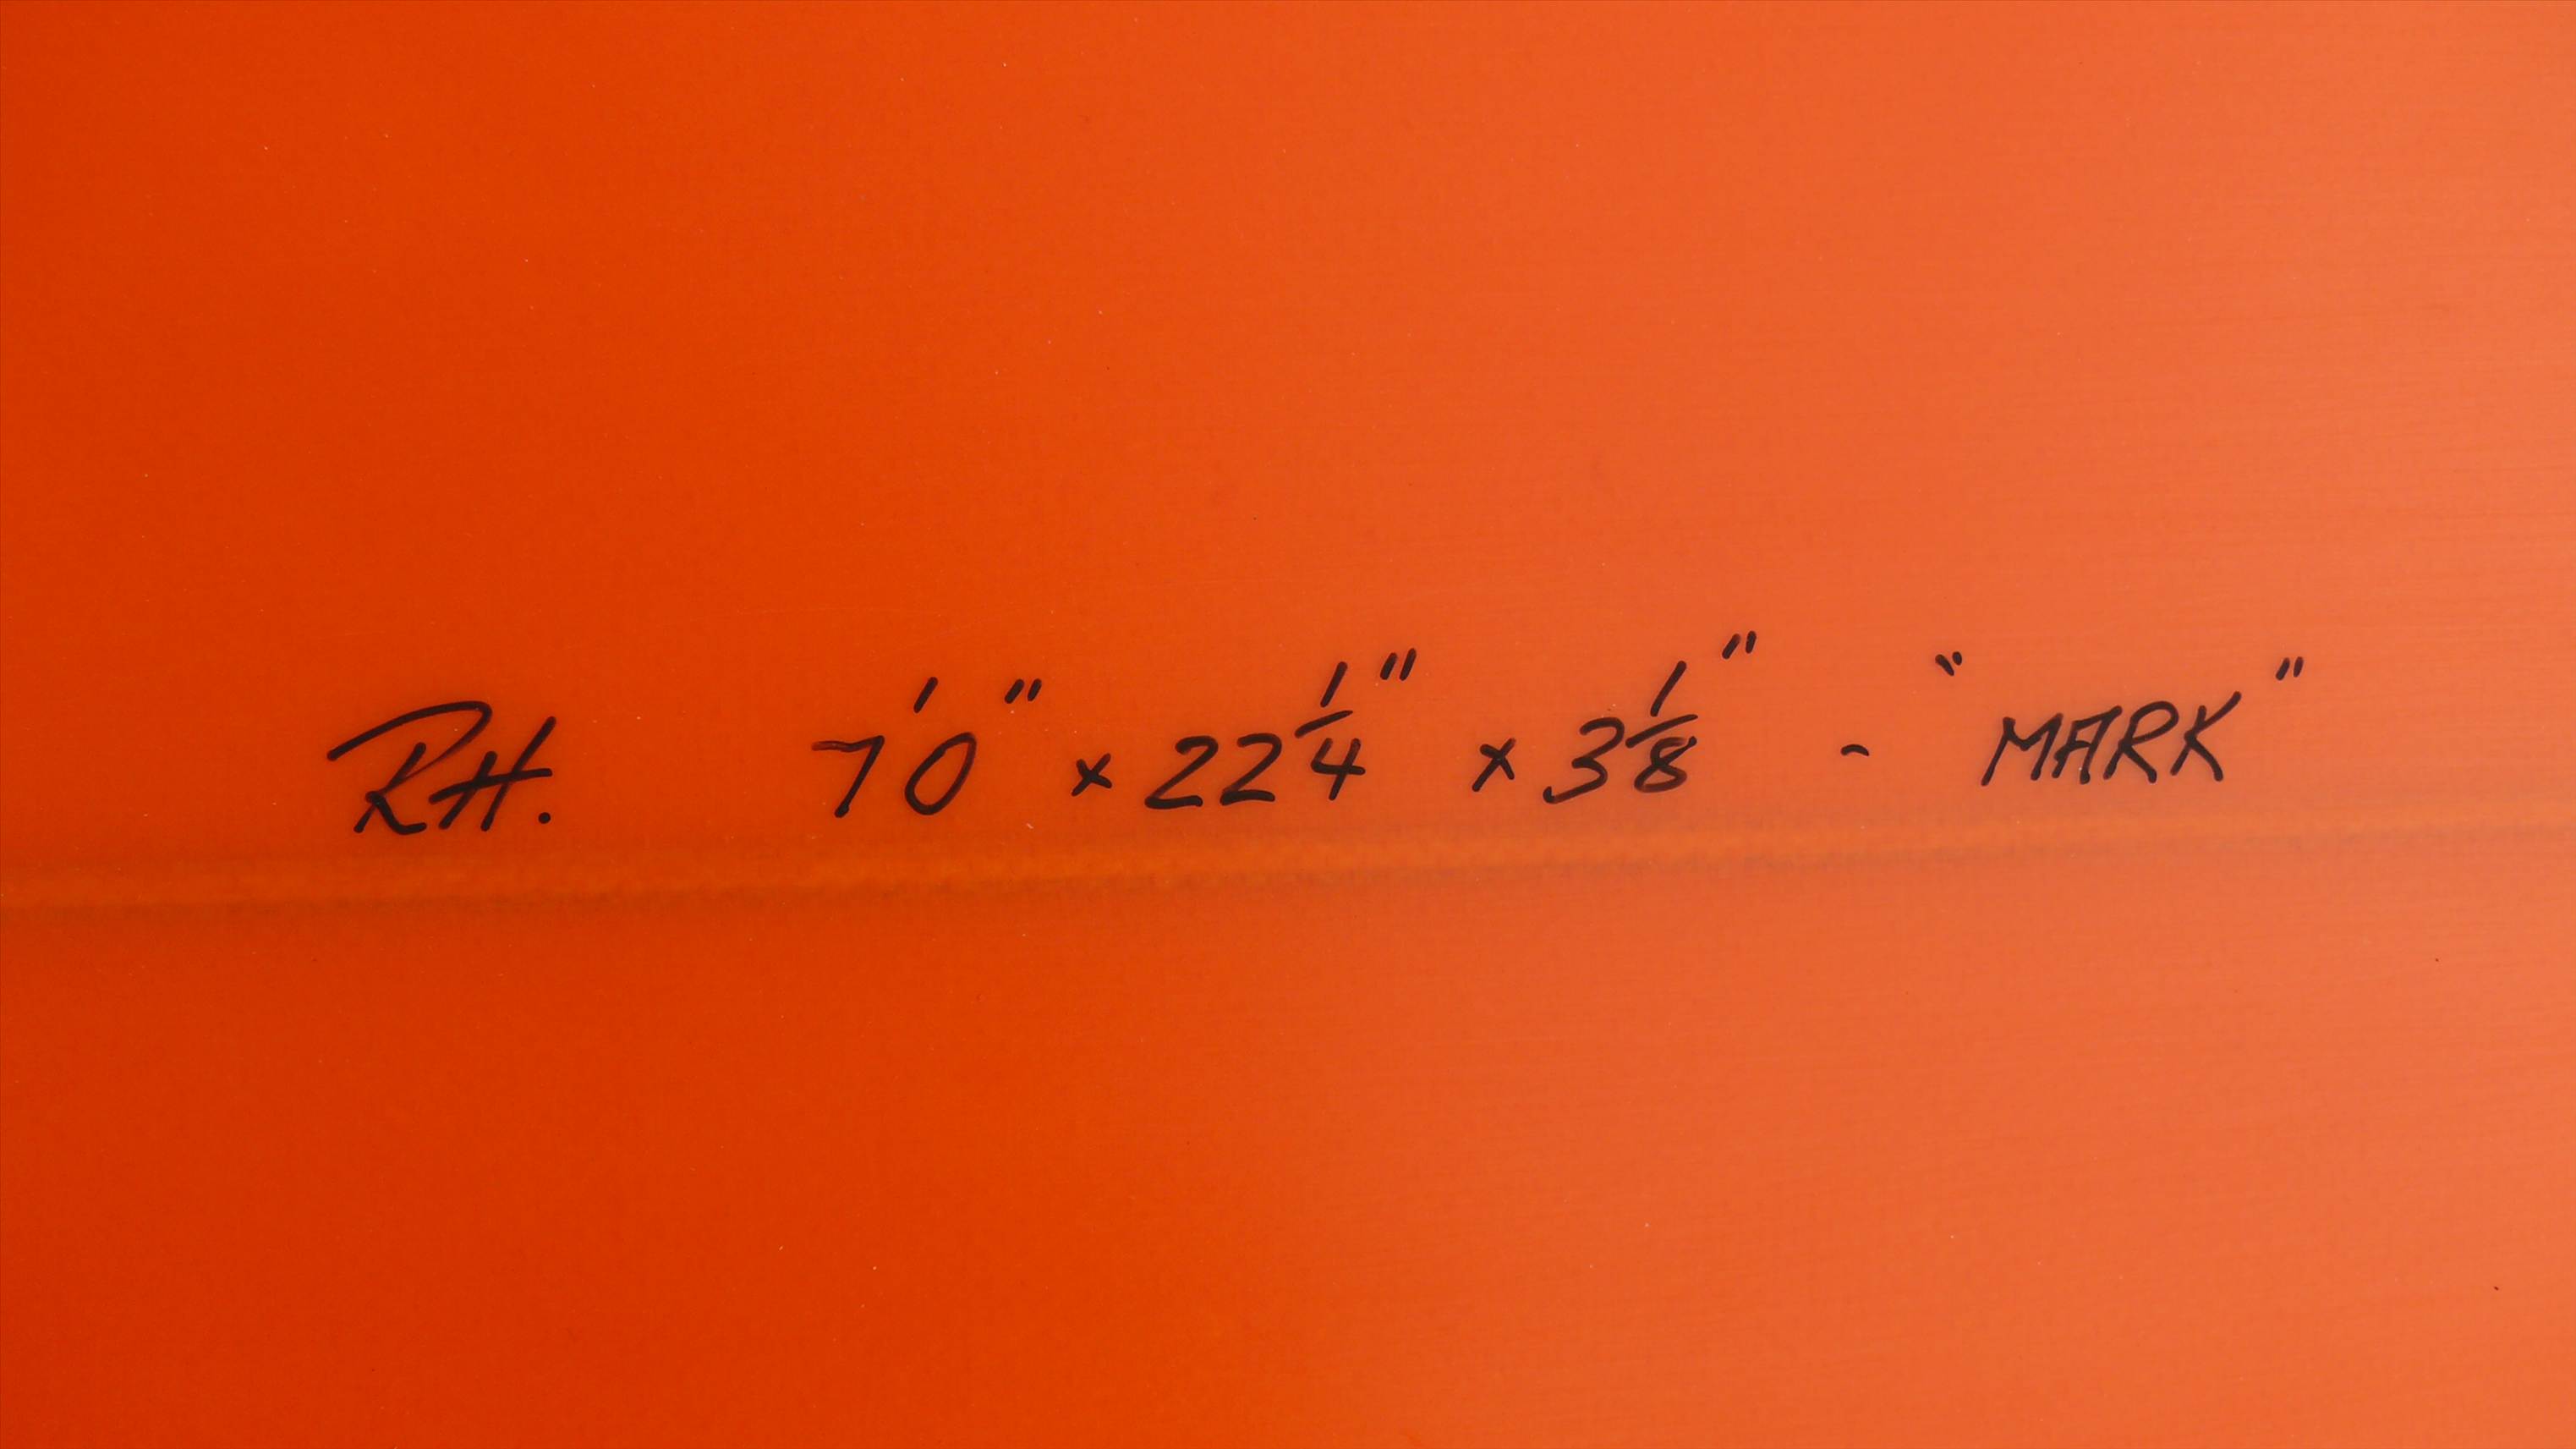 RH. 7'0" x 22 1/4" x 3 1/8" - "MARK"